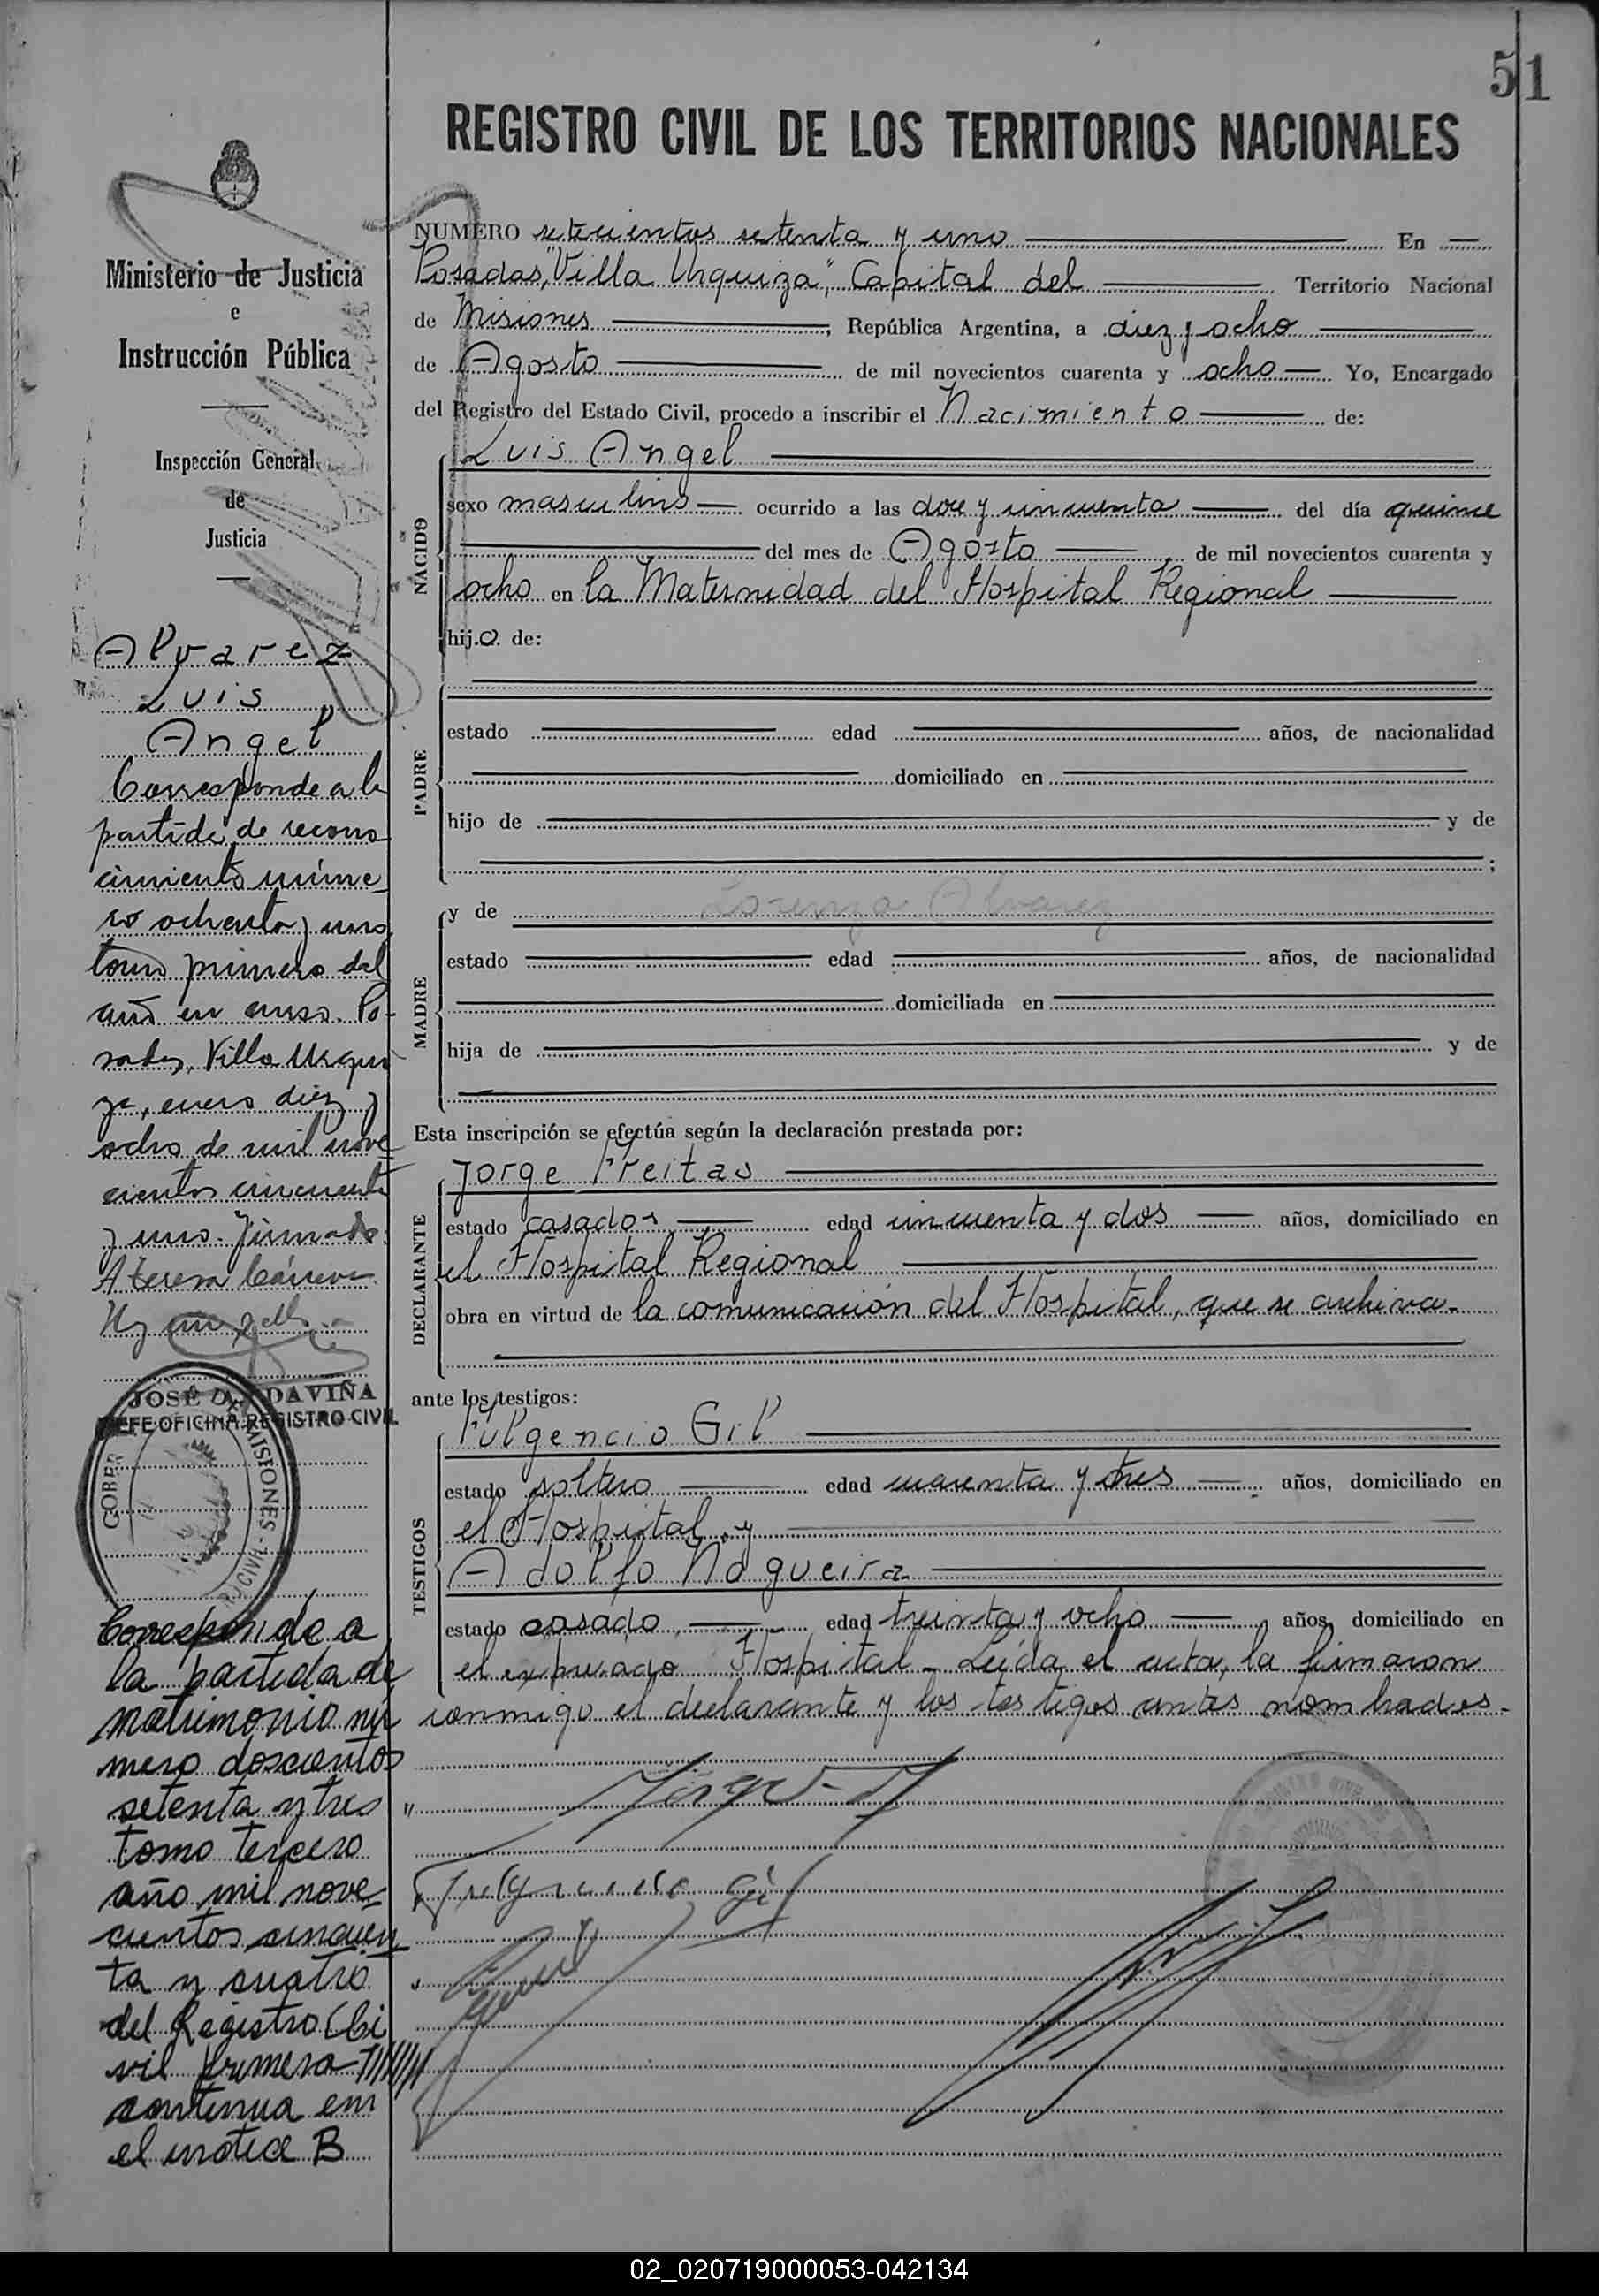 51
REGISTRO CIVIL DE LOS TERRITORIOS NACIONALES
Ministerio de Justicia
e
Instrucción Pública
Inspección General
de
Justicia
Alvarez
Luis
Angel
Corresponde a la
partida de recono
cimiento núme
ro ochenta y uno
tomo primero del
año en curso. Po-
sadas, Villa Urqui
za, enero diez y
ocho de mil nove
cientos cincuenta
y uno. Firmado:
A Teresa
JOSÉ D. DAVIÑA
JEFE OFICINA REGISTRO CIVIL
GOBER DE MISIONES - CIVIL
Corresponde a
la partida de
matrimonio nú
mero doscientos
setenta y tres
tomo tercero
año mil nove-
cientos cincuen
ta y cuatro
del Registro Ci
vil primera
continua en
el indice B
NUMERO setecientos setenta y uno En
Posadas, "Villa Urquiza", Capital del Territorio Nacional
de Misiones, República Argentina, a diez y ocho
de Agosto de mil novecientos cuarenta y ocho Yo, Encargado
del Registro del Estado Civil, procedo a inscribir el Nacimiento de:
NACIDO
Luis Angel
sexo masculino ocurrido a las doce y cincuenta del día quince
del mes de Agosto de mil novecientos cuarenta y
ocho en la Maternidad del Hospital Regional
hijo de:
PADRE
estado edad años, de nacionalidad
domiciliado en
hijo de y de
;
MADRE
y de Lorenza Alvarez
estado edad años, de nacionalidad
domiciliada en
hija de y de
Esta inscripción se efectúa según la declaración prestada por:
DECLARANTE
Jorge Freitas
estado casado edad cincuenta y dos años, domiciliado en
el Hospital Regional
obra en virtud de la comunicación del Hospital, que se archiva.
ante los testigos:
TESTIGOS
Fulgencio Gil
estado soltero edad cuarenta y tres años, domiciliado en
el Hospital y
Adolfo Nogueira
estado casado edad treinta y ocho años, domiciliado en
el expresado Hospital - Leída el acta, la firmaron
conmigo el declarante y los testigos antes nombrados.
Fulgencio Gil
02_020719000053-042134